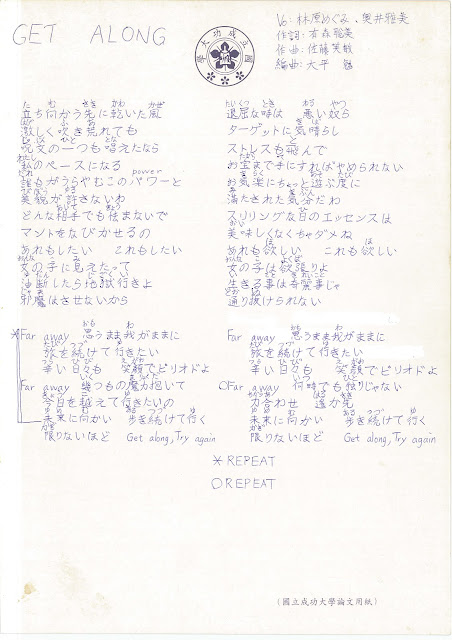 GET ALONG
國立成功大學
Vo: 林原めぐみ・奥井雅美
作詞: 有森聡美
作曲: 佐藤英敏
編曲: 大平
立ち向かう先に乾いた風
激しく吹き荒れても
呪文の一つも唱えたなら
私のペースになる
power
誰もがうらやむこのパワーと
美貌が許さないわ
どんな相手でも怯まないで
マントをなびかせるの
あれもしたい これもしたい
女の子に見えたって
油断したら地獄行きよ
邪魔はさせないから
*Far away 思うまま我がままに
旅を続けて行きたい
辛い日々も 笑顔でピリオドよ
Far away 幾つもの魔力抱いて
今日を越えて行きたいの
未来に向かい 歩き続けて行く
限りないほど Get along, Try again
退屈な時は 悪い奴ら
ターゲットに気晴らし
ストレスも飛んで
お宝まで手にすればやめられない
お気楽にちゃっと遊ぶ度に
満たされた気分だわ
スリリングな日のエッセンスは
美味しくなくちゃダメね
あれも欲しい これも欲しい
女の子は欲張りよ
生きる事は奇麗事じゃ
通り抜けられない
Far away 思うまま我がままに
旅を続けて行きたい
辛い日々も 笑顔でピリオドよ
○Far away 何時でも独りじゃない
力合わせ 遥か先
未来に向かい 歩き続けて行く
限りないほど Get along, Try again
*REPEAT
○REPEAT
(國立成功大學論文用紙)